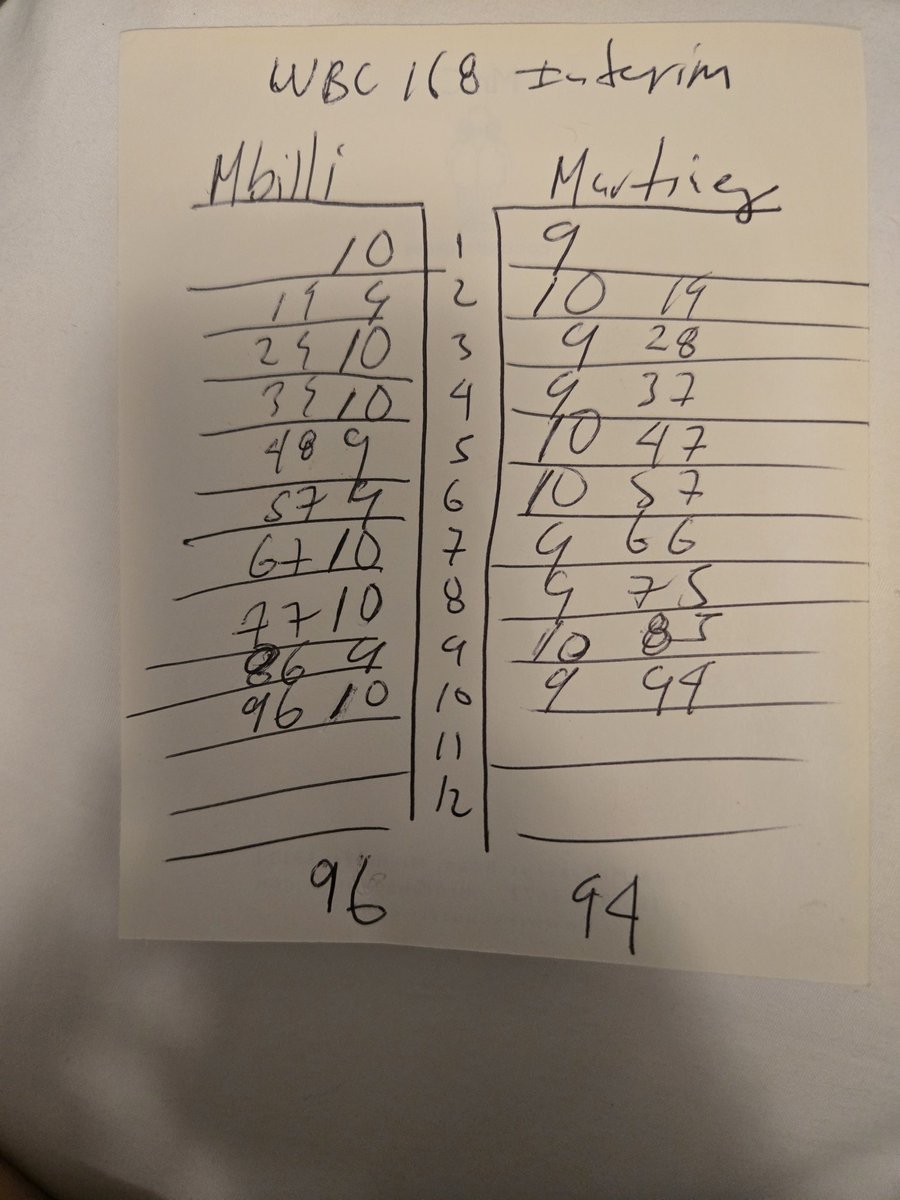 WBC 168 Interim
Mbilli Martinez
10 1 9
19 9 2 10 19
29 10 3 9 28
39 10 4 9 37
48 9 5 10 47
57 9 6 10 57
67 10 7 9 66
77 10 8 9 75
86 9 9 10 85
96 10 10 9 94
11
12
96 94